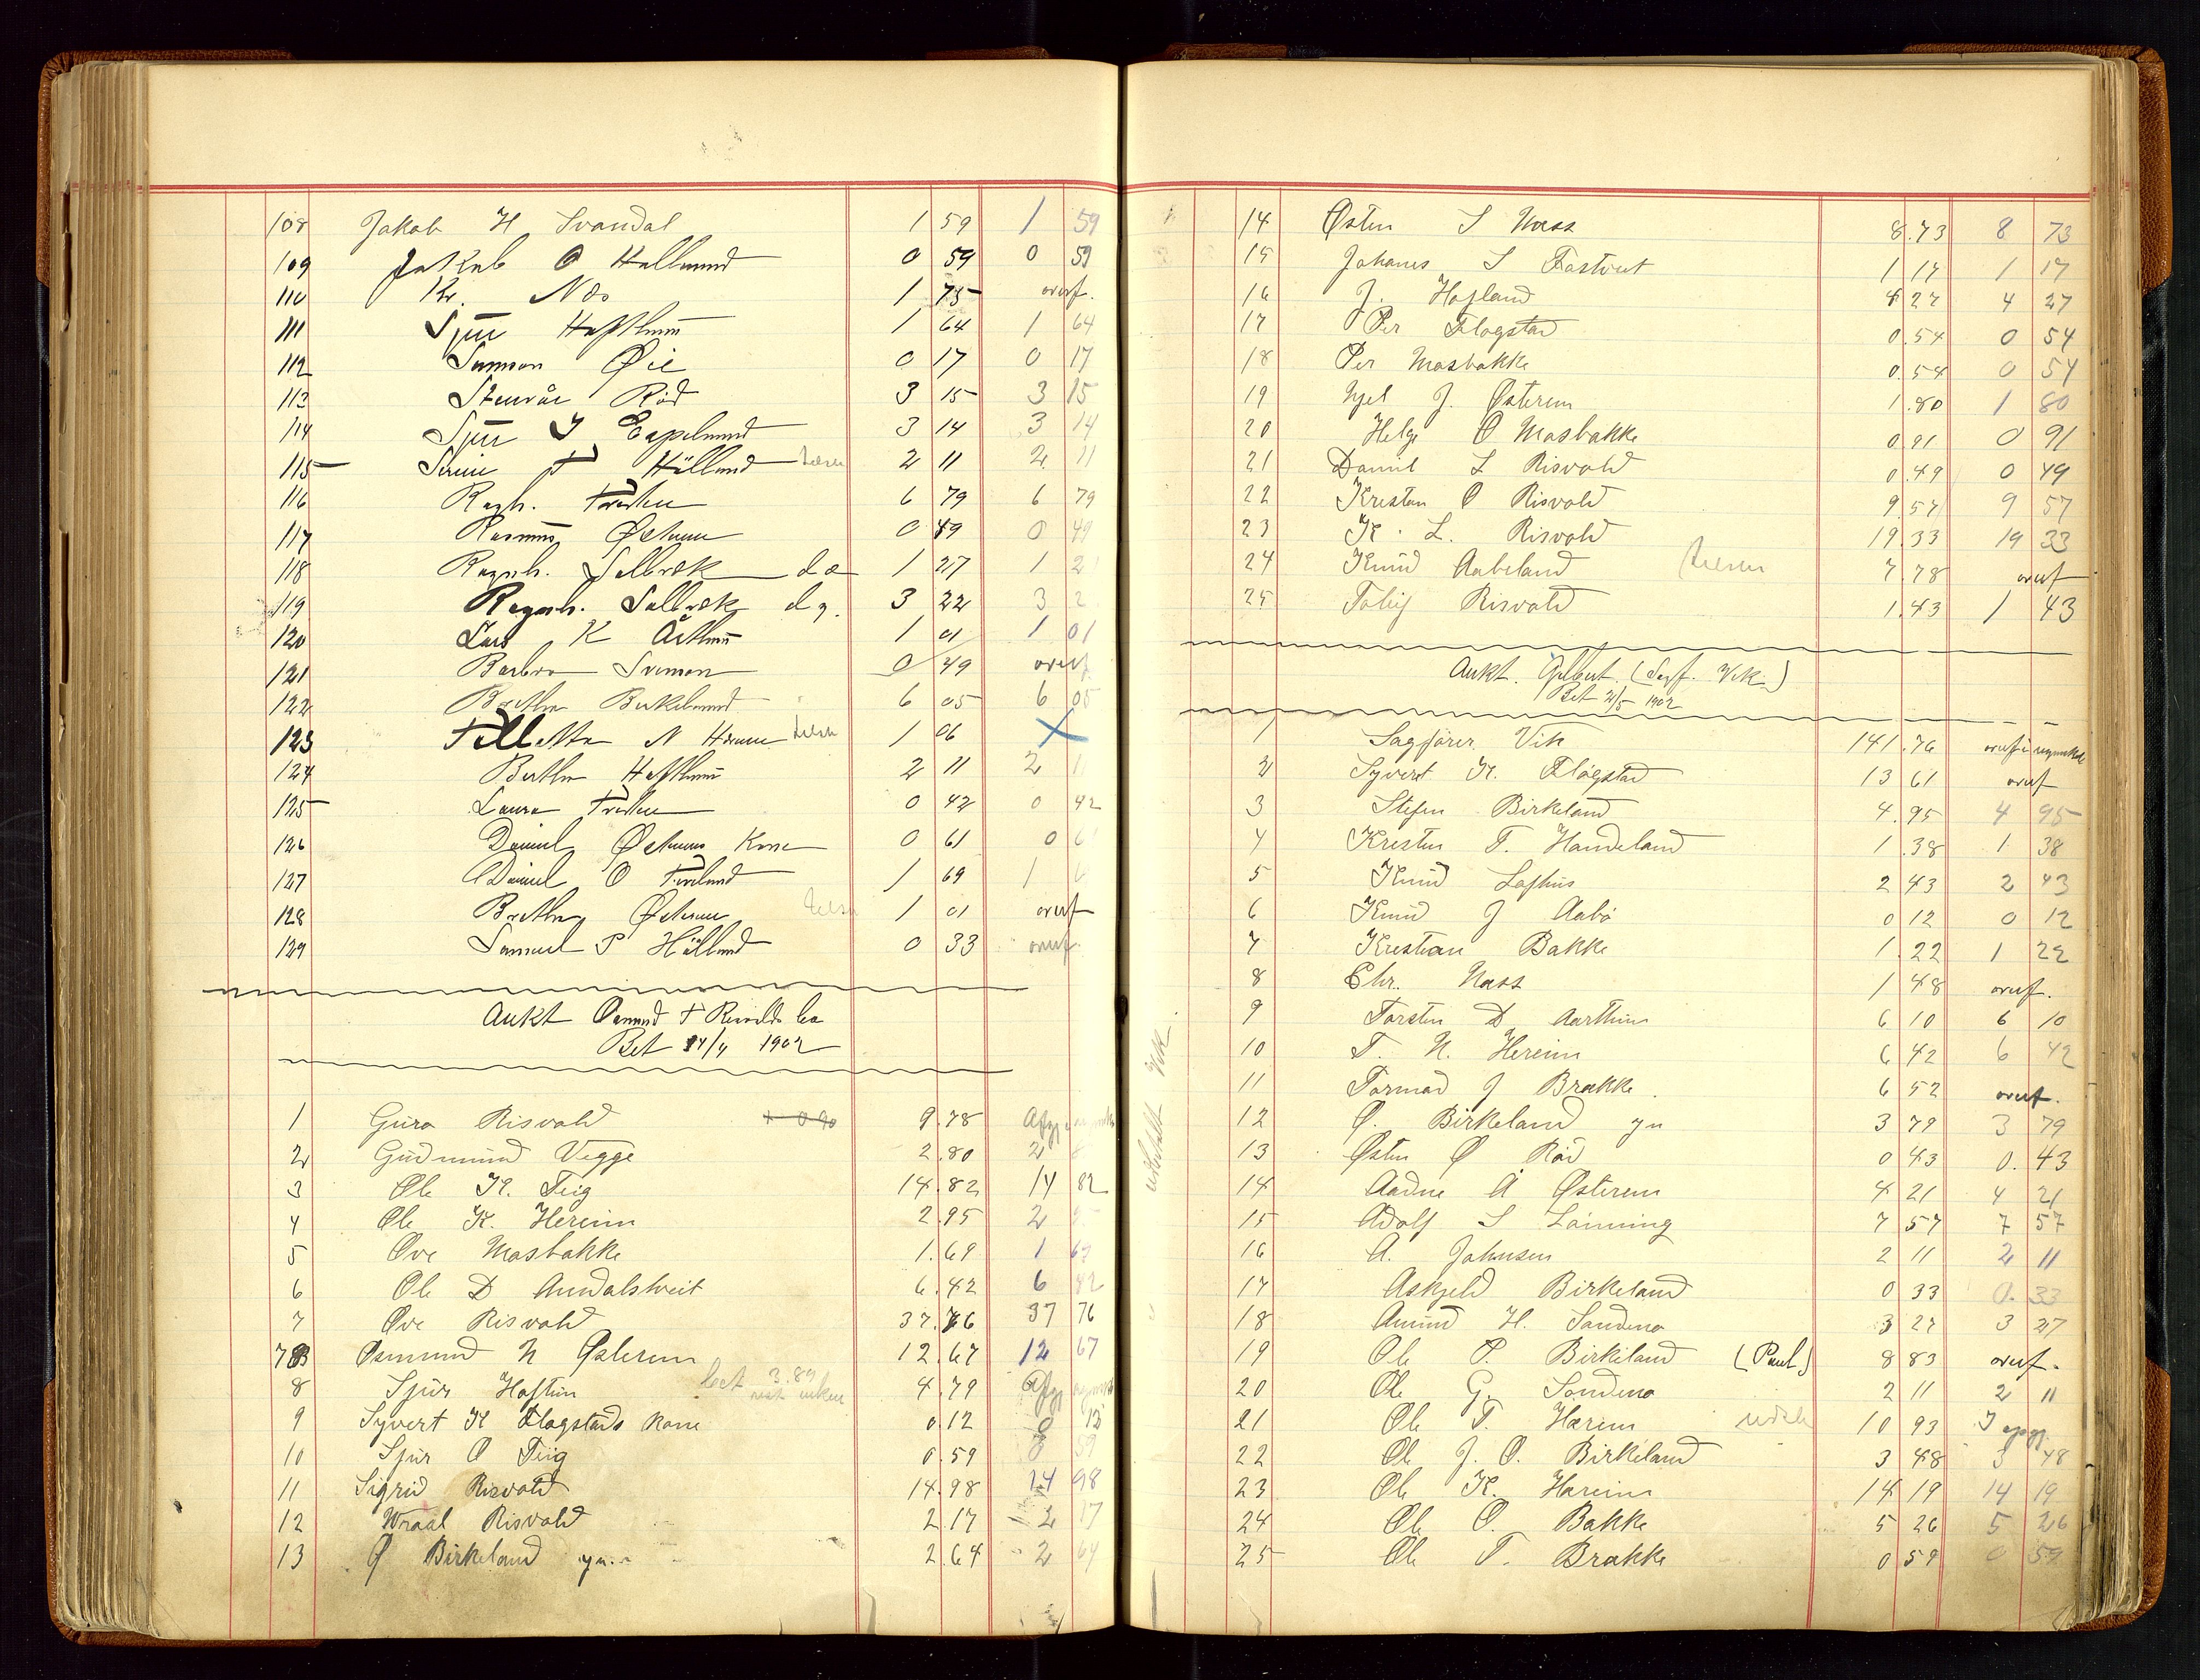 108 Jakob H Svandal 1 59 1 59
109 Jakob O Hallund 0 59 0 59
110 Kr. Næs 1 75 overf.
111 Sjur 1 64 1 64
112 Samson Øie 0 17 0 17
113 Rød 3 15 3 15
114 Sjur I 3 14 3 14
115 T 2 11 2 11
116 Ragh. 6 79 6 79
117 Rasmus 0 49 0 49
118 Ragnh. Sælbræk do 1 27 1 2
119 Ragnh. Sælbræk d.y. 3 22 3 2
120 Lars K 1 01 1 01
121 Barbro Svenson 0 49 overf
122 Berthe Birkeland 6 05 6 05
123 N 1 06 X
124 Berthe 2 11 2 1
125 Laura 0 42 0 42
126 Daniel Kone 0 61 0 6
127 Daniel O 1 69 1 6
128 Berthe 1 01 overf
129 Samuel P Hålland 0 33 overf.
Aukt Osmund T Risvolds bo
Bet 24/4 1902
1 Guro Risvold + 0 90 9.78
2 Gudmund Vegge 2.80 2
3 Ole K. Teig 14.82 14 82
4 Ole K. Hereim 2.95 2
5 Ove Mosbakke 1.69 1 69
6 Ole D Andalstveit 6.42 6 42
7 Ove Risvold 37.76 37 76
7B Osmund N Østerem 12.67 12 67
8 Sjur Haftun bet 3.89 4.79
9 Syvert K Flogstads kone 0.12 0 12
10 Sjur O Teig 0.59 0 59
11 Sigrid Risvold 14.98 14 98
12 Wraal Risvold 2.17 2 17
13 O Birkeland yn. 2.64 2 64
14 Østen S Næss 8.73 8 73
15 Johanes S Fostveit 1 17 1 17
16 J. Hofland 4 27 4 27
17 Per Flogstad 0.54 0 54
18 Per Mosbakke 0.54 0 54
19 Njel J. Østerem 1.80 1 80
20 Helge O Mosbakke 0 91 0 91
21 Daniel L Risvold 0.49 0 49
22 Kristen O Risvold 9 57 9 57
23 K. L. Risvold 19.33 19 33
24 Knud Aabeland 7.78 overf
25 Risvold 1.43 1 43
Aukt. Gilbert. (Sagf. Vik.)
Bet 2/5 1902
1 Sagfører Vik 141.76
2 Syvert K. Flogstad 13 61 overf
3 Stefen Birkeland 4.95 4 95
4 Kresten T. Handeland 1.38 1 38
5 Knud Lofhus 2 43 2 43
6 Knud J Aabø 0 12 0 12
7 Krestian Bakke 1.22 1 22
8 Chr. Næss 1 48 overf.
9 Torsten D Aarthun 6 10 6 10
10 T. N. Hereim 6 42 6 42
11 Tormod J Brakke 6 52 overf.
12 O. Birkeland yn 3 79 3 79
13 Østen Ø Rød 0 43 0. 43
14 Aadne A Østerem 4 21 4 21
15 Adolf S Lønning 7 57 7 57
16 A. Johnsen 2 11 2 11
17 Askjeld Birkeland 0 33 0. 33
18 Amund H. Sandeno 3 27 3 27
19 Ole P. Birkeland (Paul) 8 83 overf.
20 Ole G. Sandeno 2 11 2 11
21 Ole T. Hareim 10 93
22 Ole J. O. Birkeland 3 48 3 48
23 Ole K. Hareim 14 19 14 19
24 Ole O. Bakke 5 26 5 26
25 Ole T. Brakke 0 59 0 59